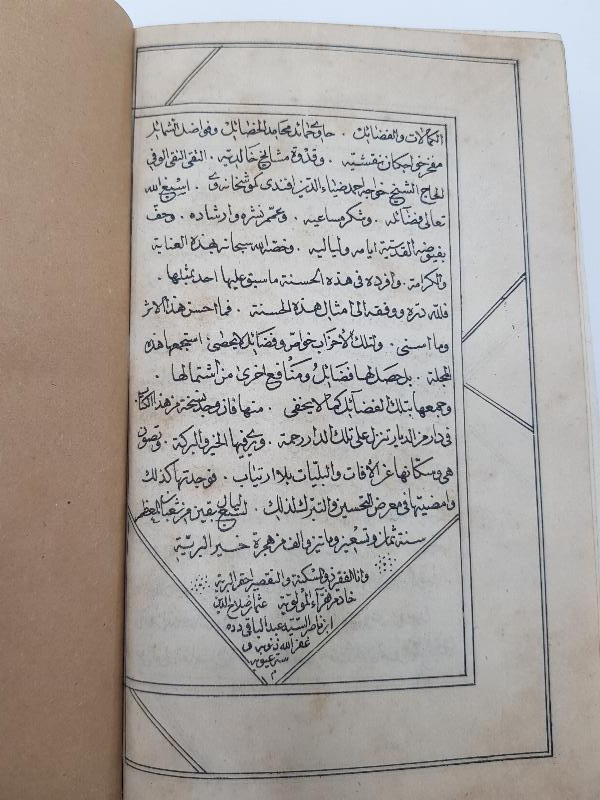 الكمالات والفضائل . حاوى حمائد محامد الخصائل وفواضل الشمائل
مفخر خواجكان نقشبنديه . وقدوة مشايخ خالديه . التقى النقى الوفى
الحاج الشيخ خواجه احمد ضياء الدين افندى كموشخانوى . اسبغ الله
تعالى فضائله . وشكر مساعيه . وعمم نشره وارشاده . وحف
بفيوضه القدسية ايامه ولياليه . وخصه الله سبحانه بهذه العناية
والكرامة . وافرده فى هذه الحسنة ما سبق عليها احد بمثلها .
فلله دره ووفقه الى امثال هذه الحسنة . فما احسن هذا الاثر
وما اسنى . ولتلك الاحزاب خواص وفضائل لا يحصى استجمعها هذه
المجلة . بل حصل لها فضائل ومنافع اخرى من اشتمالها
وجمعها بتلك الفضائل كما لا يخفى . منها فاز وجد نسخة من هذا الكتاب
فى دار من الديار تنزل على تلك الدار رحمة . ويكثر فيها الخير والبركة . وتصون
هى وسكانها عن الآفات والبليات بلا ارتياب . فوجدتها كذلك
وامضيتها فى معرض التحسين والتبرك لذلك . لسبع ليال بقين من شعبان المعظم
سنة ثمان وتسعين وماتين والف من هجرة خير البرية
وانا الفقير ذو المسكنة والتقصير احقر البرية
خادم فقراء المولوية عثمان صلاح الدين
ابن ناصر السيد عبد الباقى دده
غفر الله ذنوبه و
ستر عيوبه
م